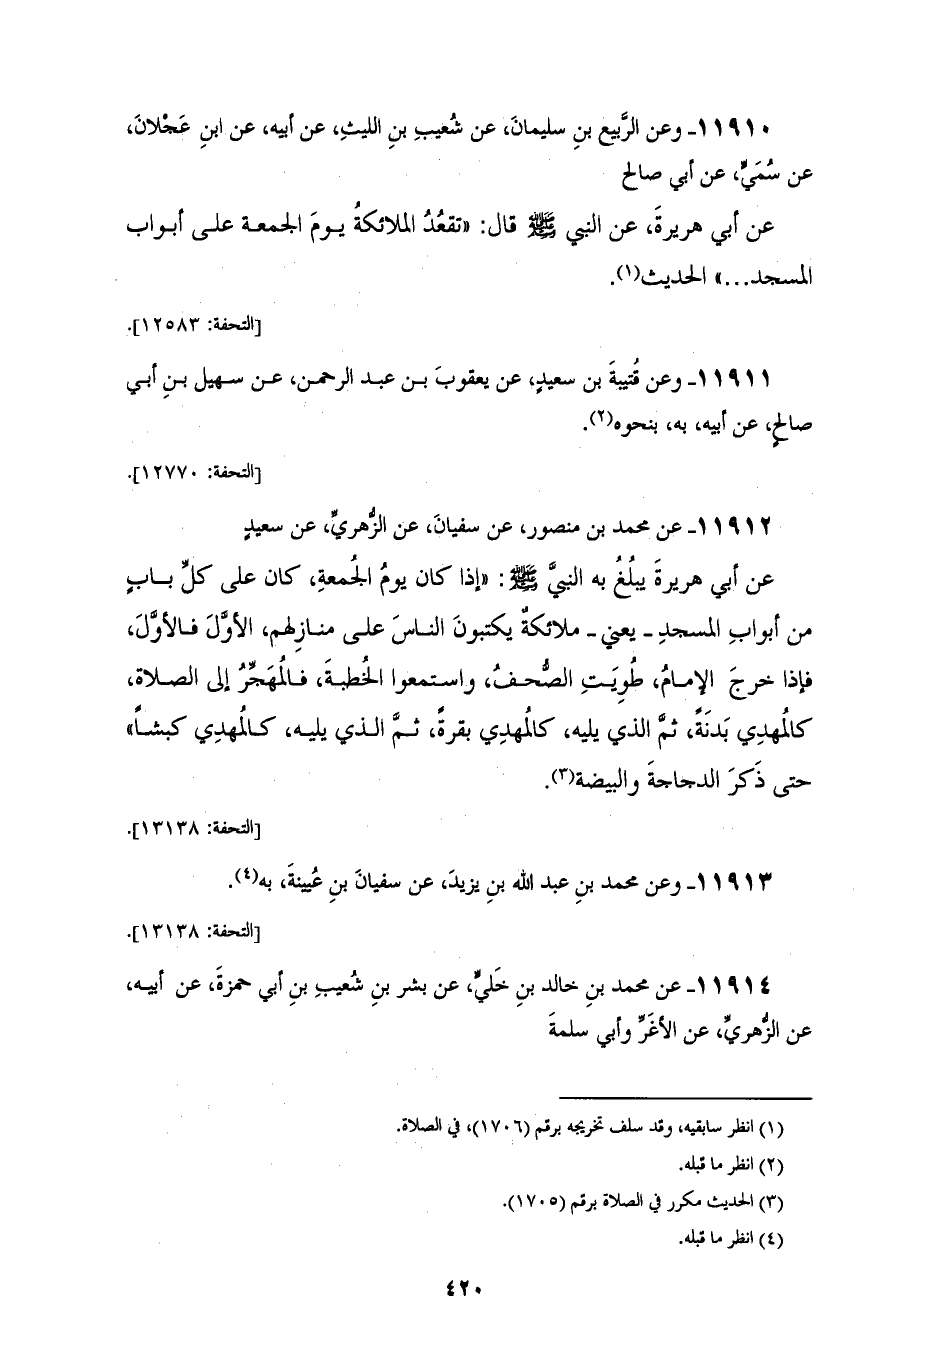 ١١٩١٠ـ وعن الرَّبيع بنِ سليمانَ، عن شُعيبِ بنِ الليثِ، عن أبيه، عن ابنِ عَجْلانَ،
عن سُمَيٍّ، عن أبي صالح
عن أبي هريرةَ، عن النبي ﷺ قال: «تقعُدُ الملائكةُ يـومَ الجمعـة علـى أبـواب
المسجد...» الحديث(١).
[التحفة: ١٢٥٨٣].
١١٩١١ـ وعن قُتيبةَ بن سعيدٍ، عن يعقوبَ بـن عبـد الرحمـن، عـن سـهيل بـنِ أبـي
صالحٍ، عن أبيه، به، بنحوه(٢).
[التحفة: ١٢٧٧٠].
١١٩١٢ـ عن محمد بن منصور، عن سفيانَ، عن الزُّهريِّ، عن سعيدٍ
عن أبي هريرةَ يبلُغُ به النبيَّ ﷺ: «إذا كان يومُ الجُمعةِ، كان على كلِّ بـابٍ
من أبوابِ المسجدِ ـ يعني ـ ملائكةٌ يكتبونَ النـاسَ علـى منـازِلهم، الأوَّلَ فـالأوَّلَ،
فإذا خرجَ الإمـامُ، طُوِيَـتِ الصُّحـفُ، واسـتمعوا الخُطبـةَ، فـالمُهَجِّرُ إلى الصـلاة،
كالمُهدِي بَدَنَةً، ثمَّ الذي يليه، كالمُهدِي بقرةً، ثـمَّ الـذي يليـه، كـالمُهدِي كبشـاً»
حتى ذَكرَ الدجاجةَ والبيضة(٣).
[التحفة: ١٣١٣٨].
١١٩١٣ـ وعن محمد بنِ عبد الله بنِ يزيدَ، عن سفيانَ بنِ عُيينةَ، به(٤).
[التحفة: ١٣١٣٨].
١١٩١٤ـ عن محمد بنِ خالد بنِ خَليٍّ، عن بشر بنِ شُعيبِ بنِ أبي حمزةَ، عن أبيـه،
عن الزُّهريِّ، عن الأغَرِّ وأبي سلمةَ
(١) انظر سابقيه، وقد سلف تخريجه برقم (١٧٠٦)، في الصلاة.
(٢) انظر ما قبله.
(٣) الحديث مكرر في الصلاة برقم (١٧٠٥).
(٤) انظر ما قبله.
٤٢٠